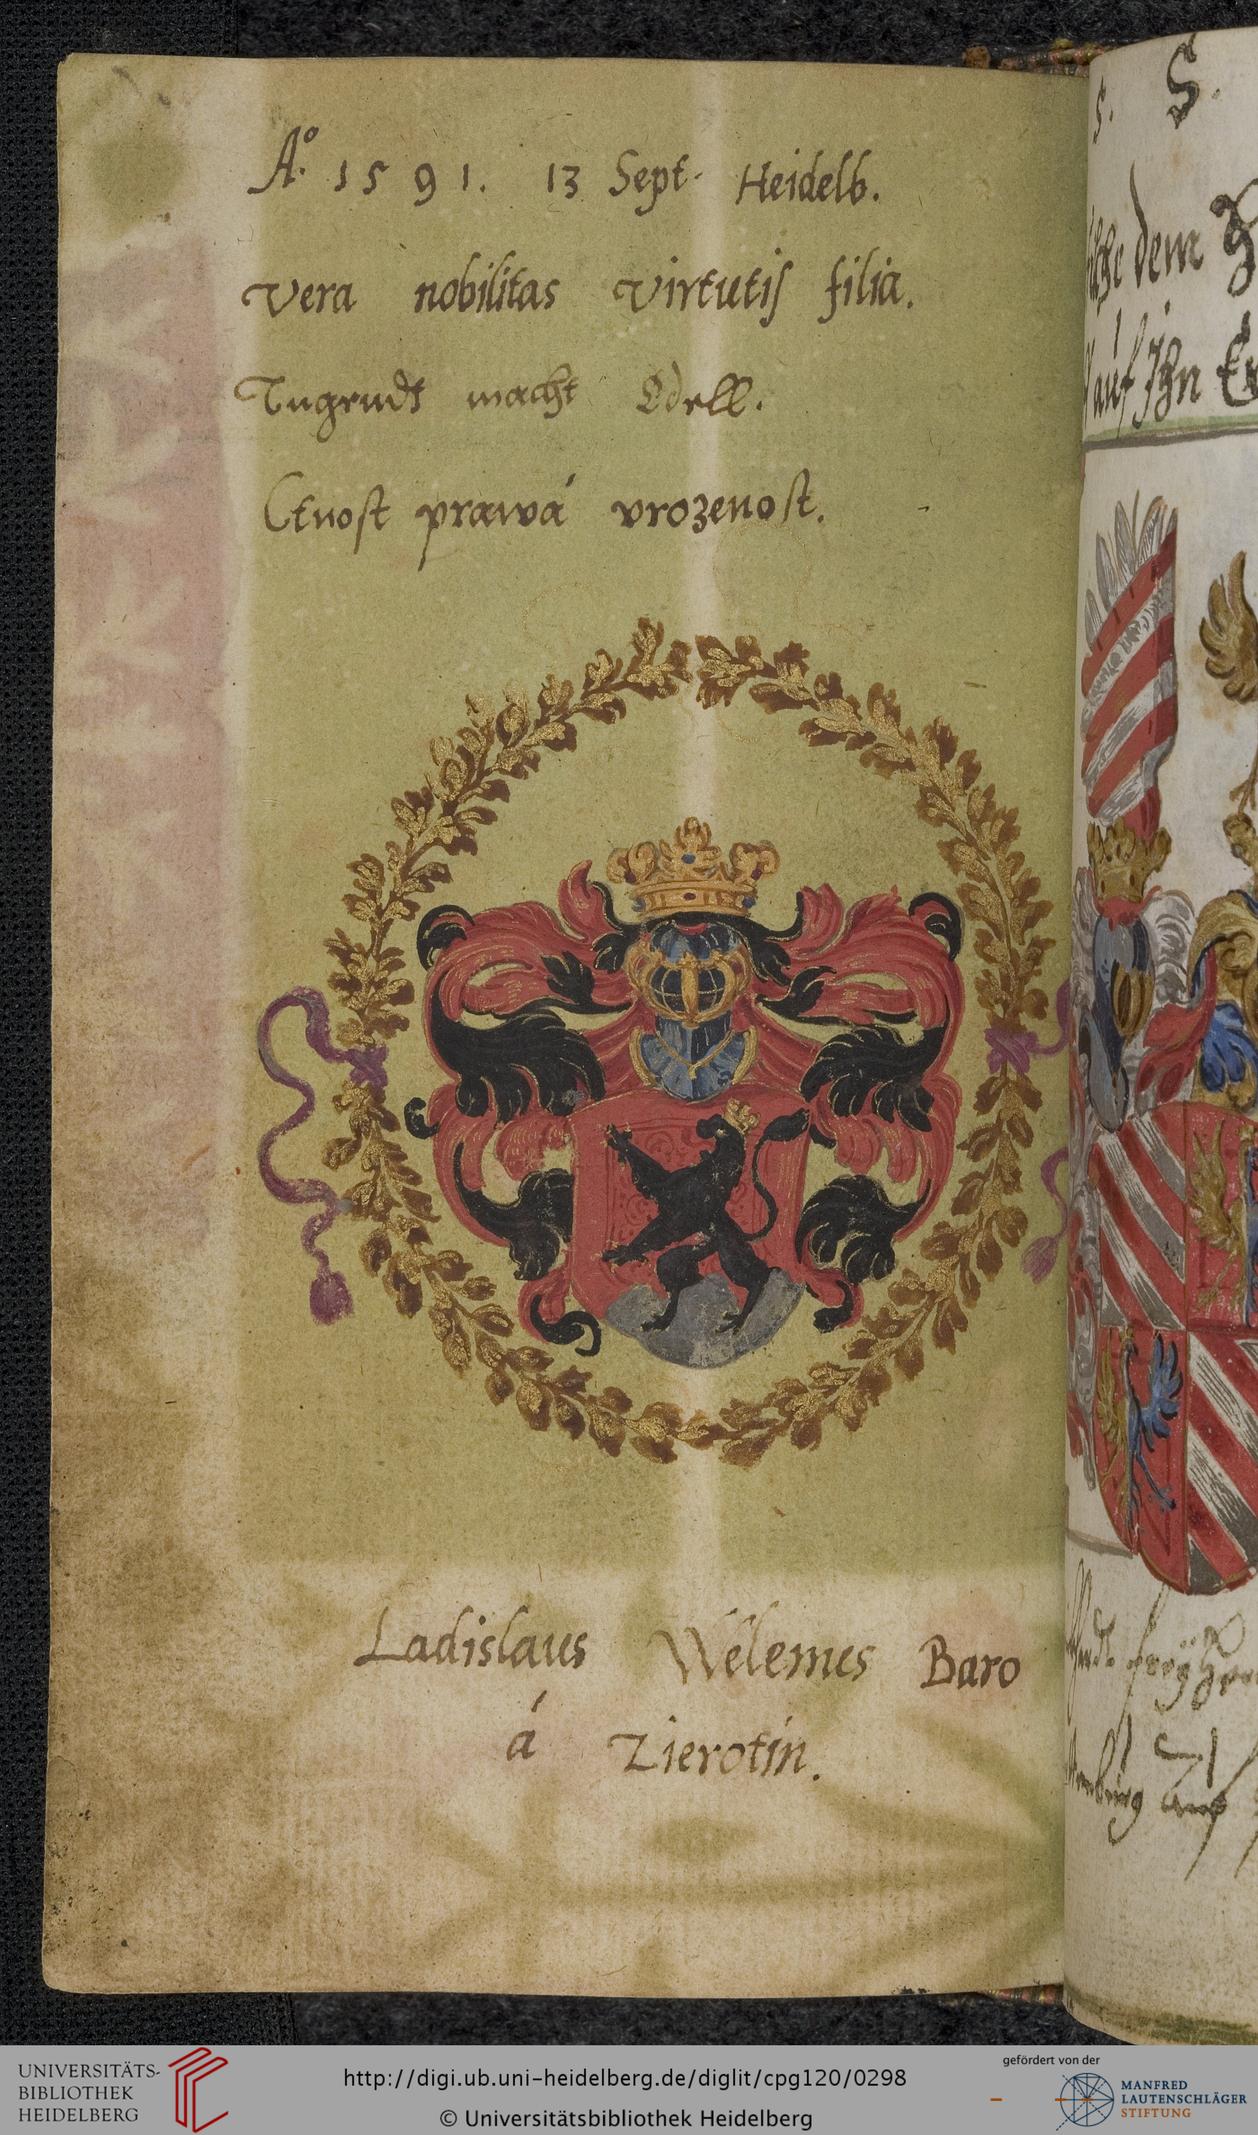 Aº. 1591. 13 Sept. Heidelb.
Vera nobilitas virtutis filia.
Tugendt macht Edell.
Ctnost prawá vrozenost.
Ladislaus Welemus Baro
á Zierotin.
S. S.
dem
auf Ihn
UNIVERSITÄTS-
BIBLIOTHEK
HEIDELBERG
http://digi.ub.uni-heidelberg.de/diglit/cpg120/0298
© Universitätsbibliothek Heidelberg
gefördert von der
MANFRED
LAUTENSCHLÄGER
STIFTUNG